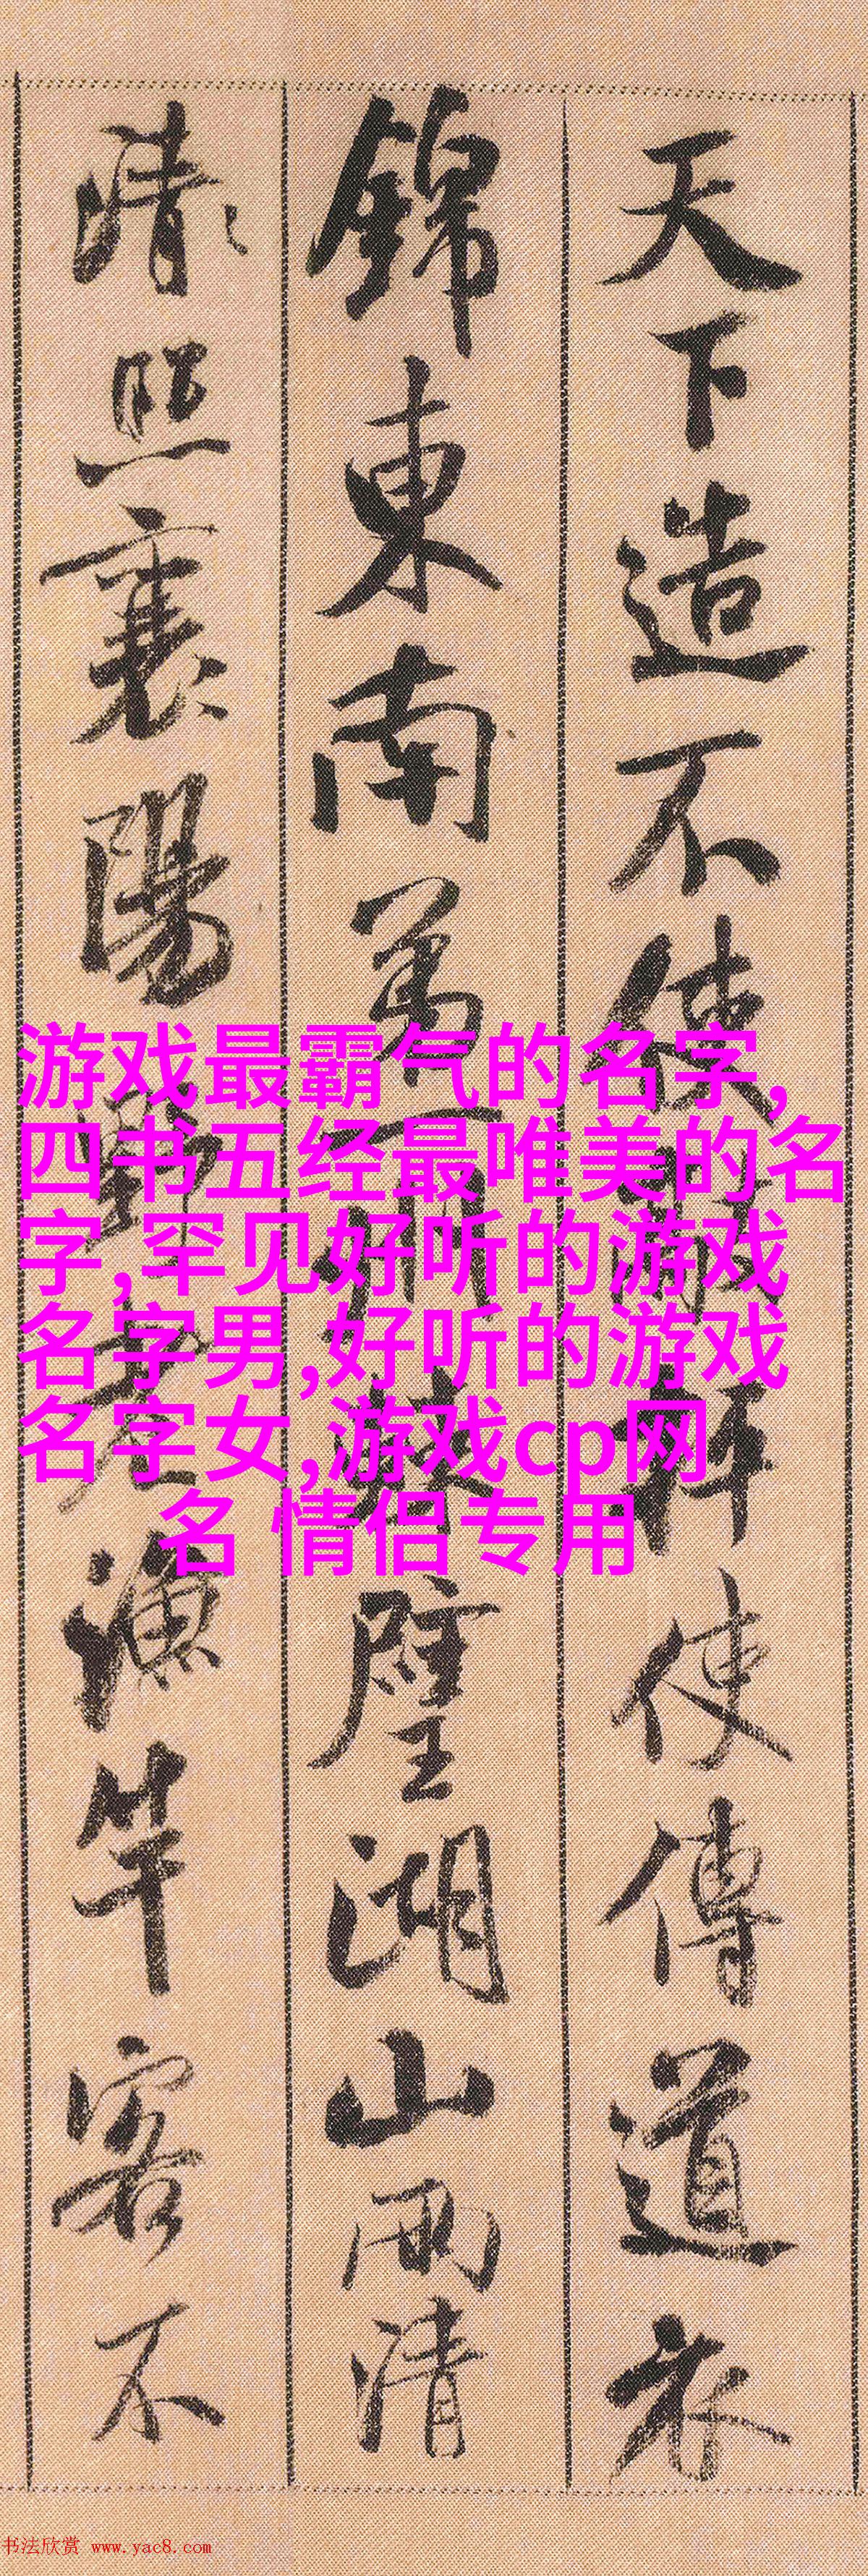 天下造不使 使傳道衣
錦東南第一州 壁湖山兩清
清照襄陽 老漁竿客不
游戏最霸气的名字,
四书五经最唯美的名
字,罕见好听的游戏
名字男,好听的游戏
名字女,游戏cp网
名 情侣专用
书法欣赏 www.yac8.com